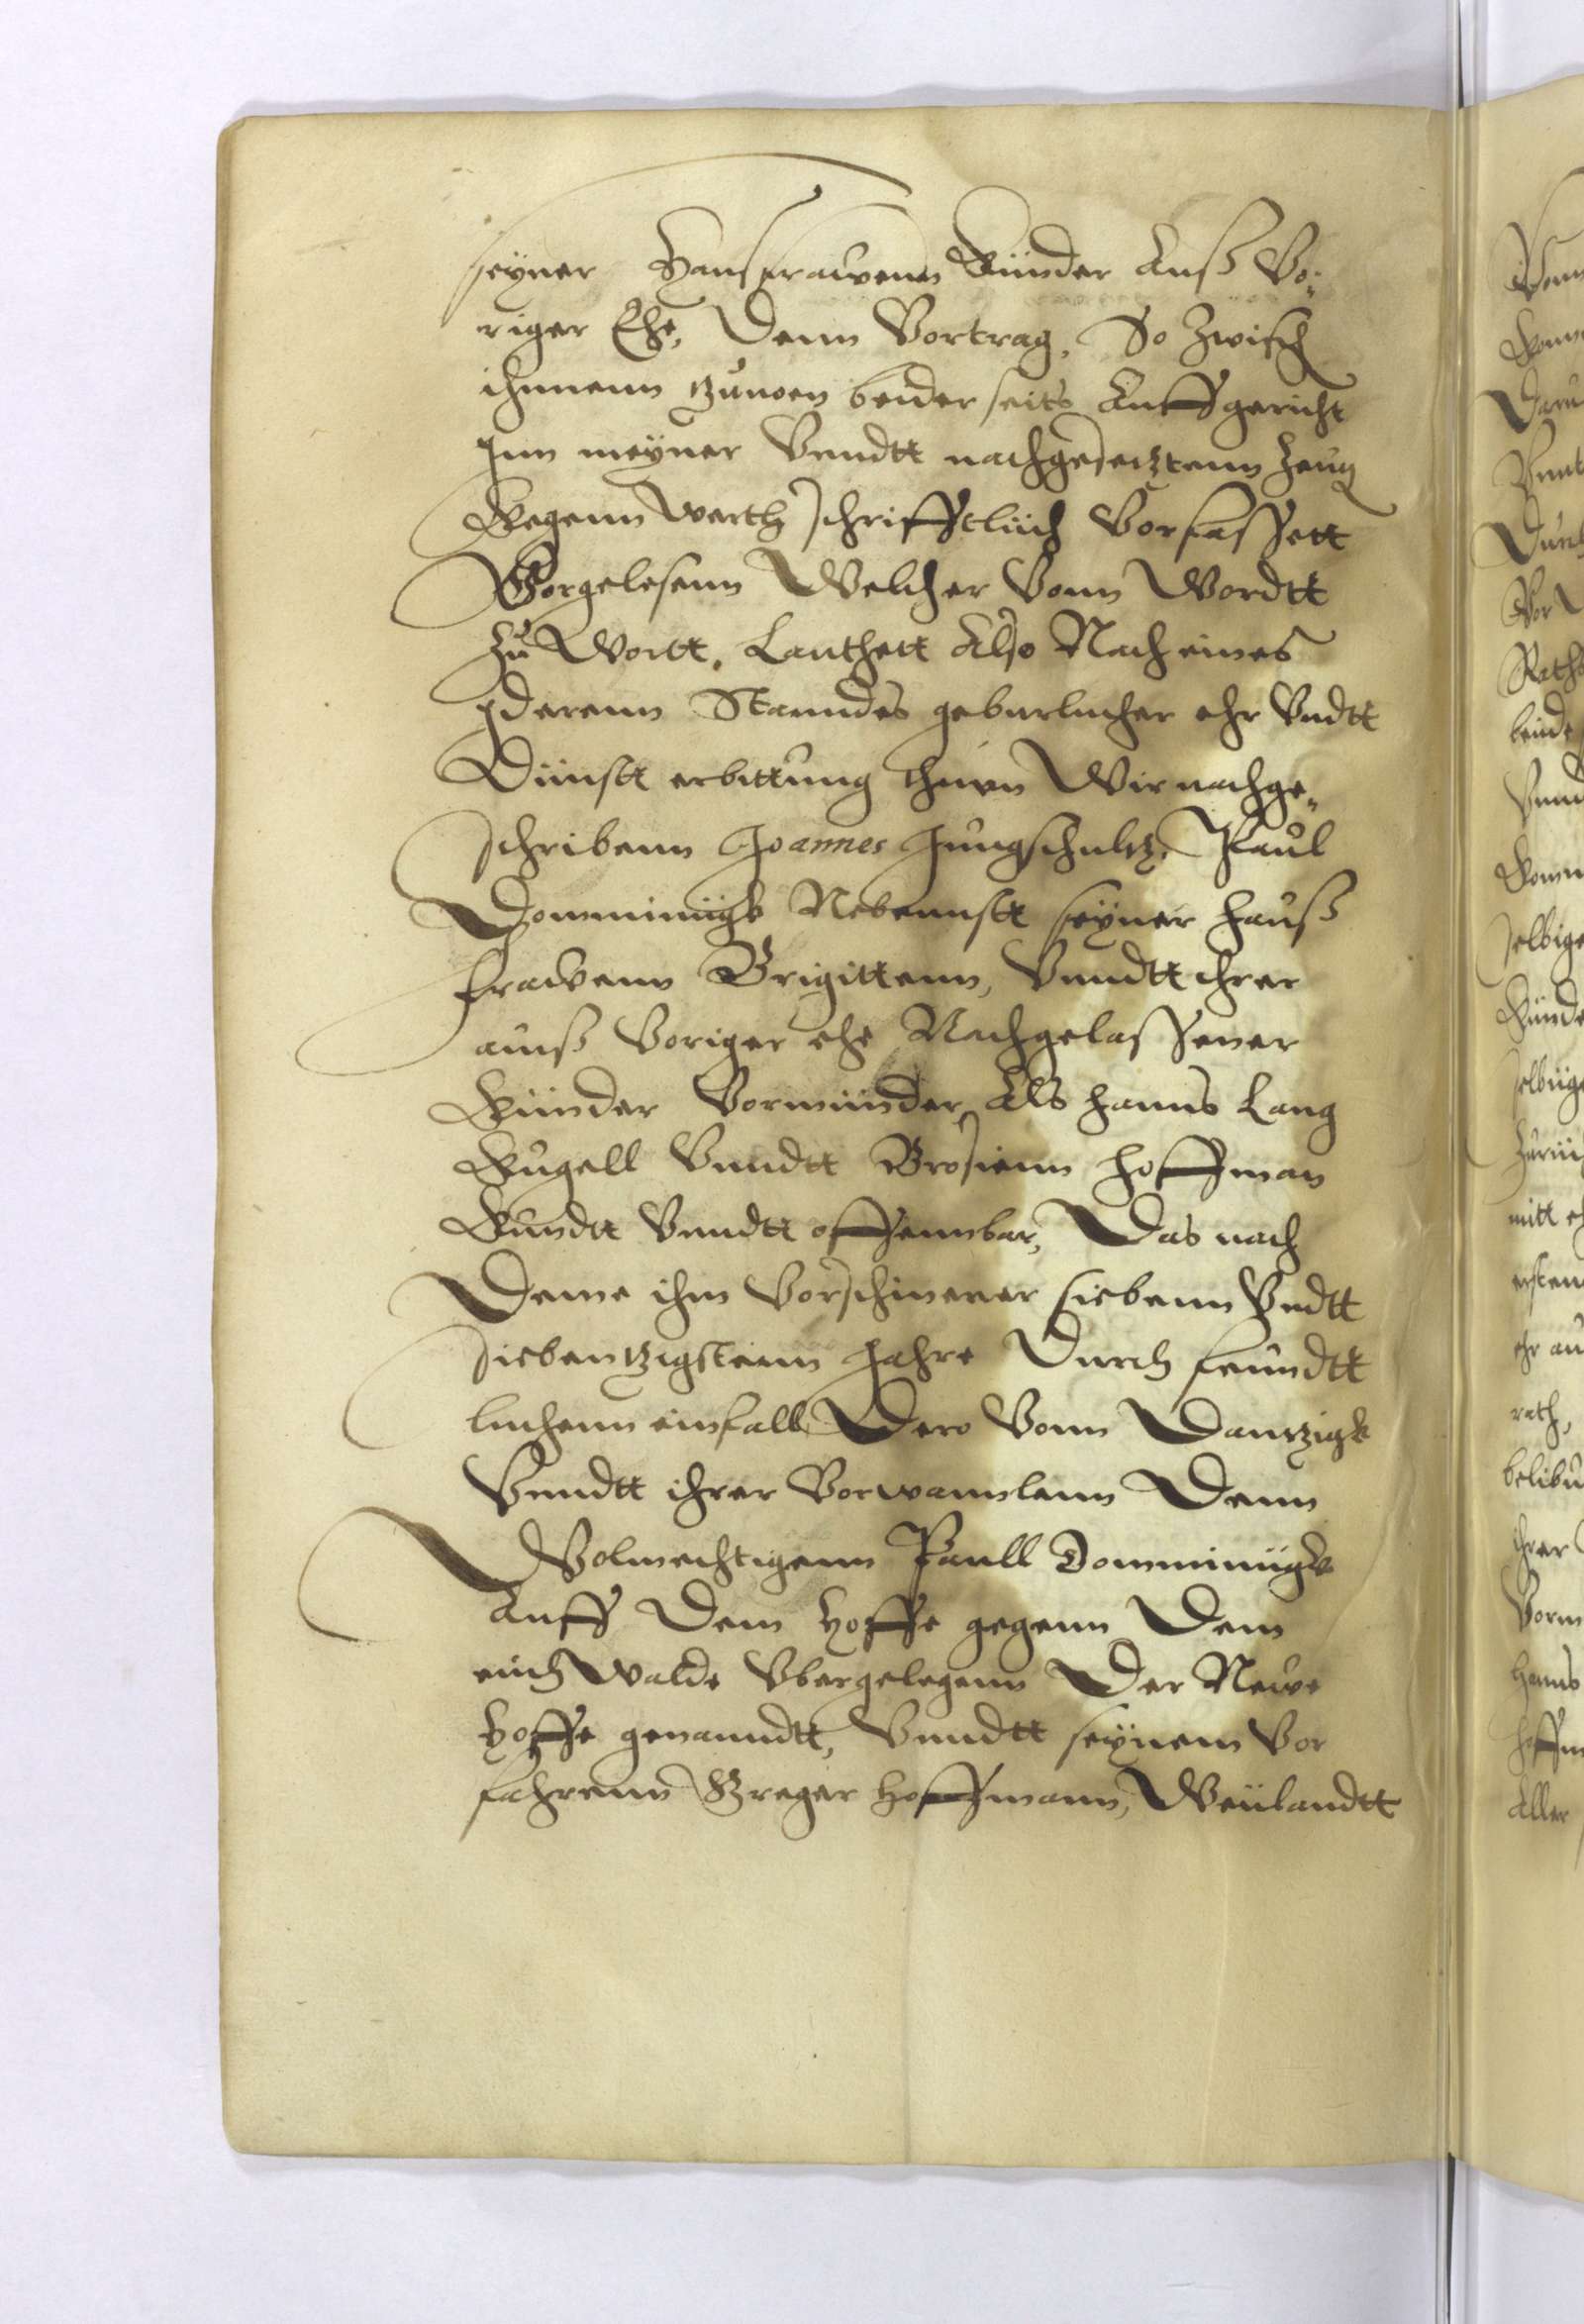 seyner Hausfrawenn Künder Auß Vo-
riger Ehe, Denn Vortrag, So Zwisch
ihnnenn tzuuoen beider seits Auffgericht
Inn meyner Vnndtt nachgesetztenn Zeug
Kegenn warth schrifftlich Vorfassett
Vorgelesenn Welcher Vonn Wordtt
Zu Wortt. Lauthett Also Nach eines
Iderenn Stanndes geburlicher ehr Vndtt
Dinstt erbittung thuen Wir nachge-
schribenn Joannes Jungschultz, Paul
Domminigk Nebennstt seyner Hauß
frawenn Brigittenn, Vnndtt ihrer
auß Voriger ehe Nachgelassener
Künder Vormünder Als Hanns Lang
Kugell Vnndtt Brosienn Hoffman
Kundtt Vnndtt offennbar, Das nach
Deme ihm Vorschinener siebenn Vndtt
siebentzigstenn Jahre Durch feundtt
lichenn einfall Dero Vonn Dantzigk
Vnndtt ihrer Vorwannlenn Denn
Volmechtigenn Paull Domminigk
Auff Dem Hoffe gegenn Dem
eich Walde Vbergelegenn Der Newe
Hoffe genanndtt, Vnndtt seynem Vor
fahrenn Greger Hoffmann, Weilandtt